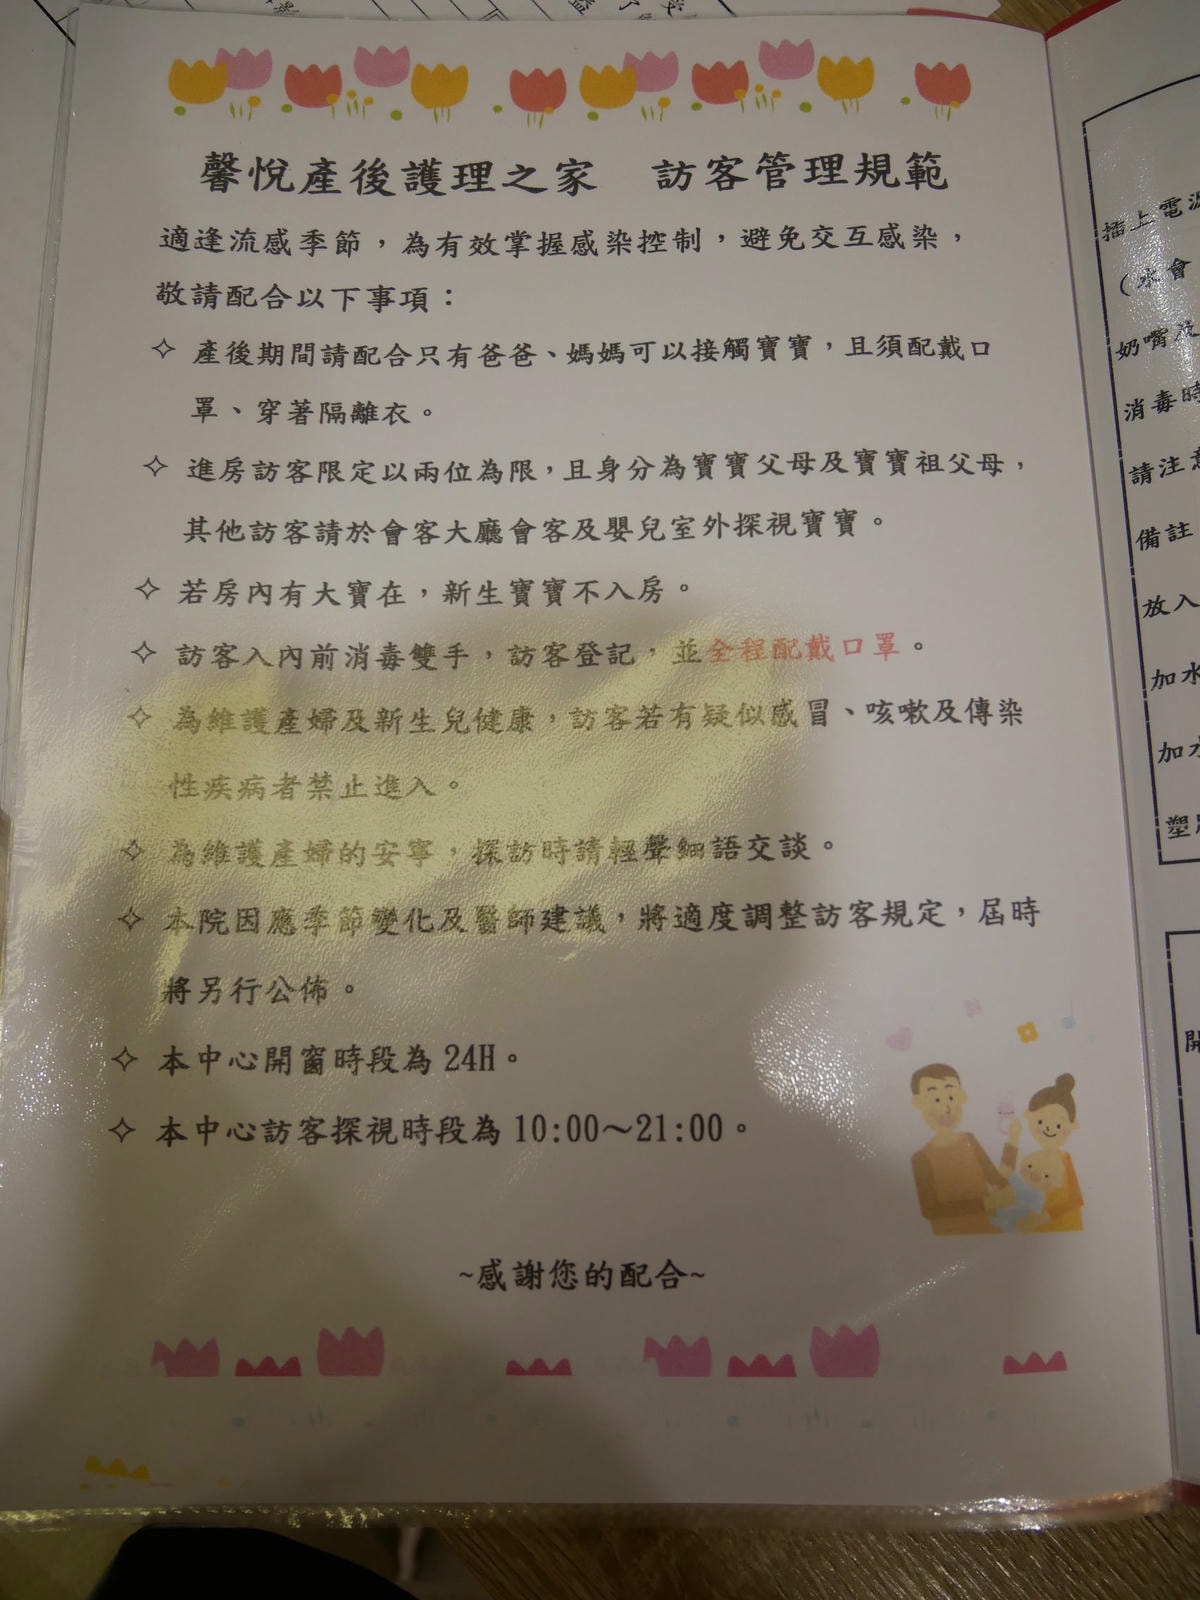 馨悅產後護理之家 訪客管理規範
適逢流感季節，為有效掌握感染控制，避免交互感染，
敬請配合以下事項：
✧ 產後期間請配合只有爸爸、媽媽可以接觸寶寶，且須配戴口
罩、穿著隔離衣。
✧ 進房訪客限定以兩位為限，且身分為寶寶父母及寶寶祖父母，
其他訪客請於會客大廳會客及嬰兒室外探視寶寶。
✧ 若房內有大寶在，新生寶寶不入房。
✧ 訪客入內前消毒雙手，訪客登記，並全程配戴口罩。
✧ 為維護產婦及新生兒健康，訪客若有疑似感冒、咳嗽及傳染
性疾病者禁止進入。
✧ 為維護產婦的安寧，探訪時請輕聲細語交談。
✧ 本院因應季節變化及醫師建議，將適度調整訪客規定，屆時
將另行公佈。
✧ 本中心開窗時段為 24H。
✧ 本中心訪客探視時段為 10:00～21:00。
~感謝您的配合~
插上電源
（水會
奶嘴
消毒時
請注意
備註
放入
加水
加水
塑
開